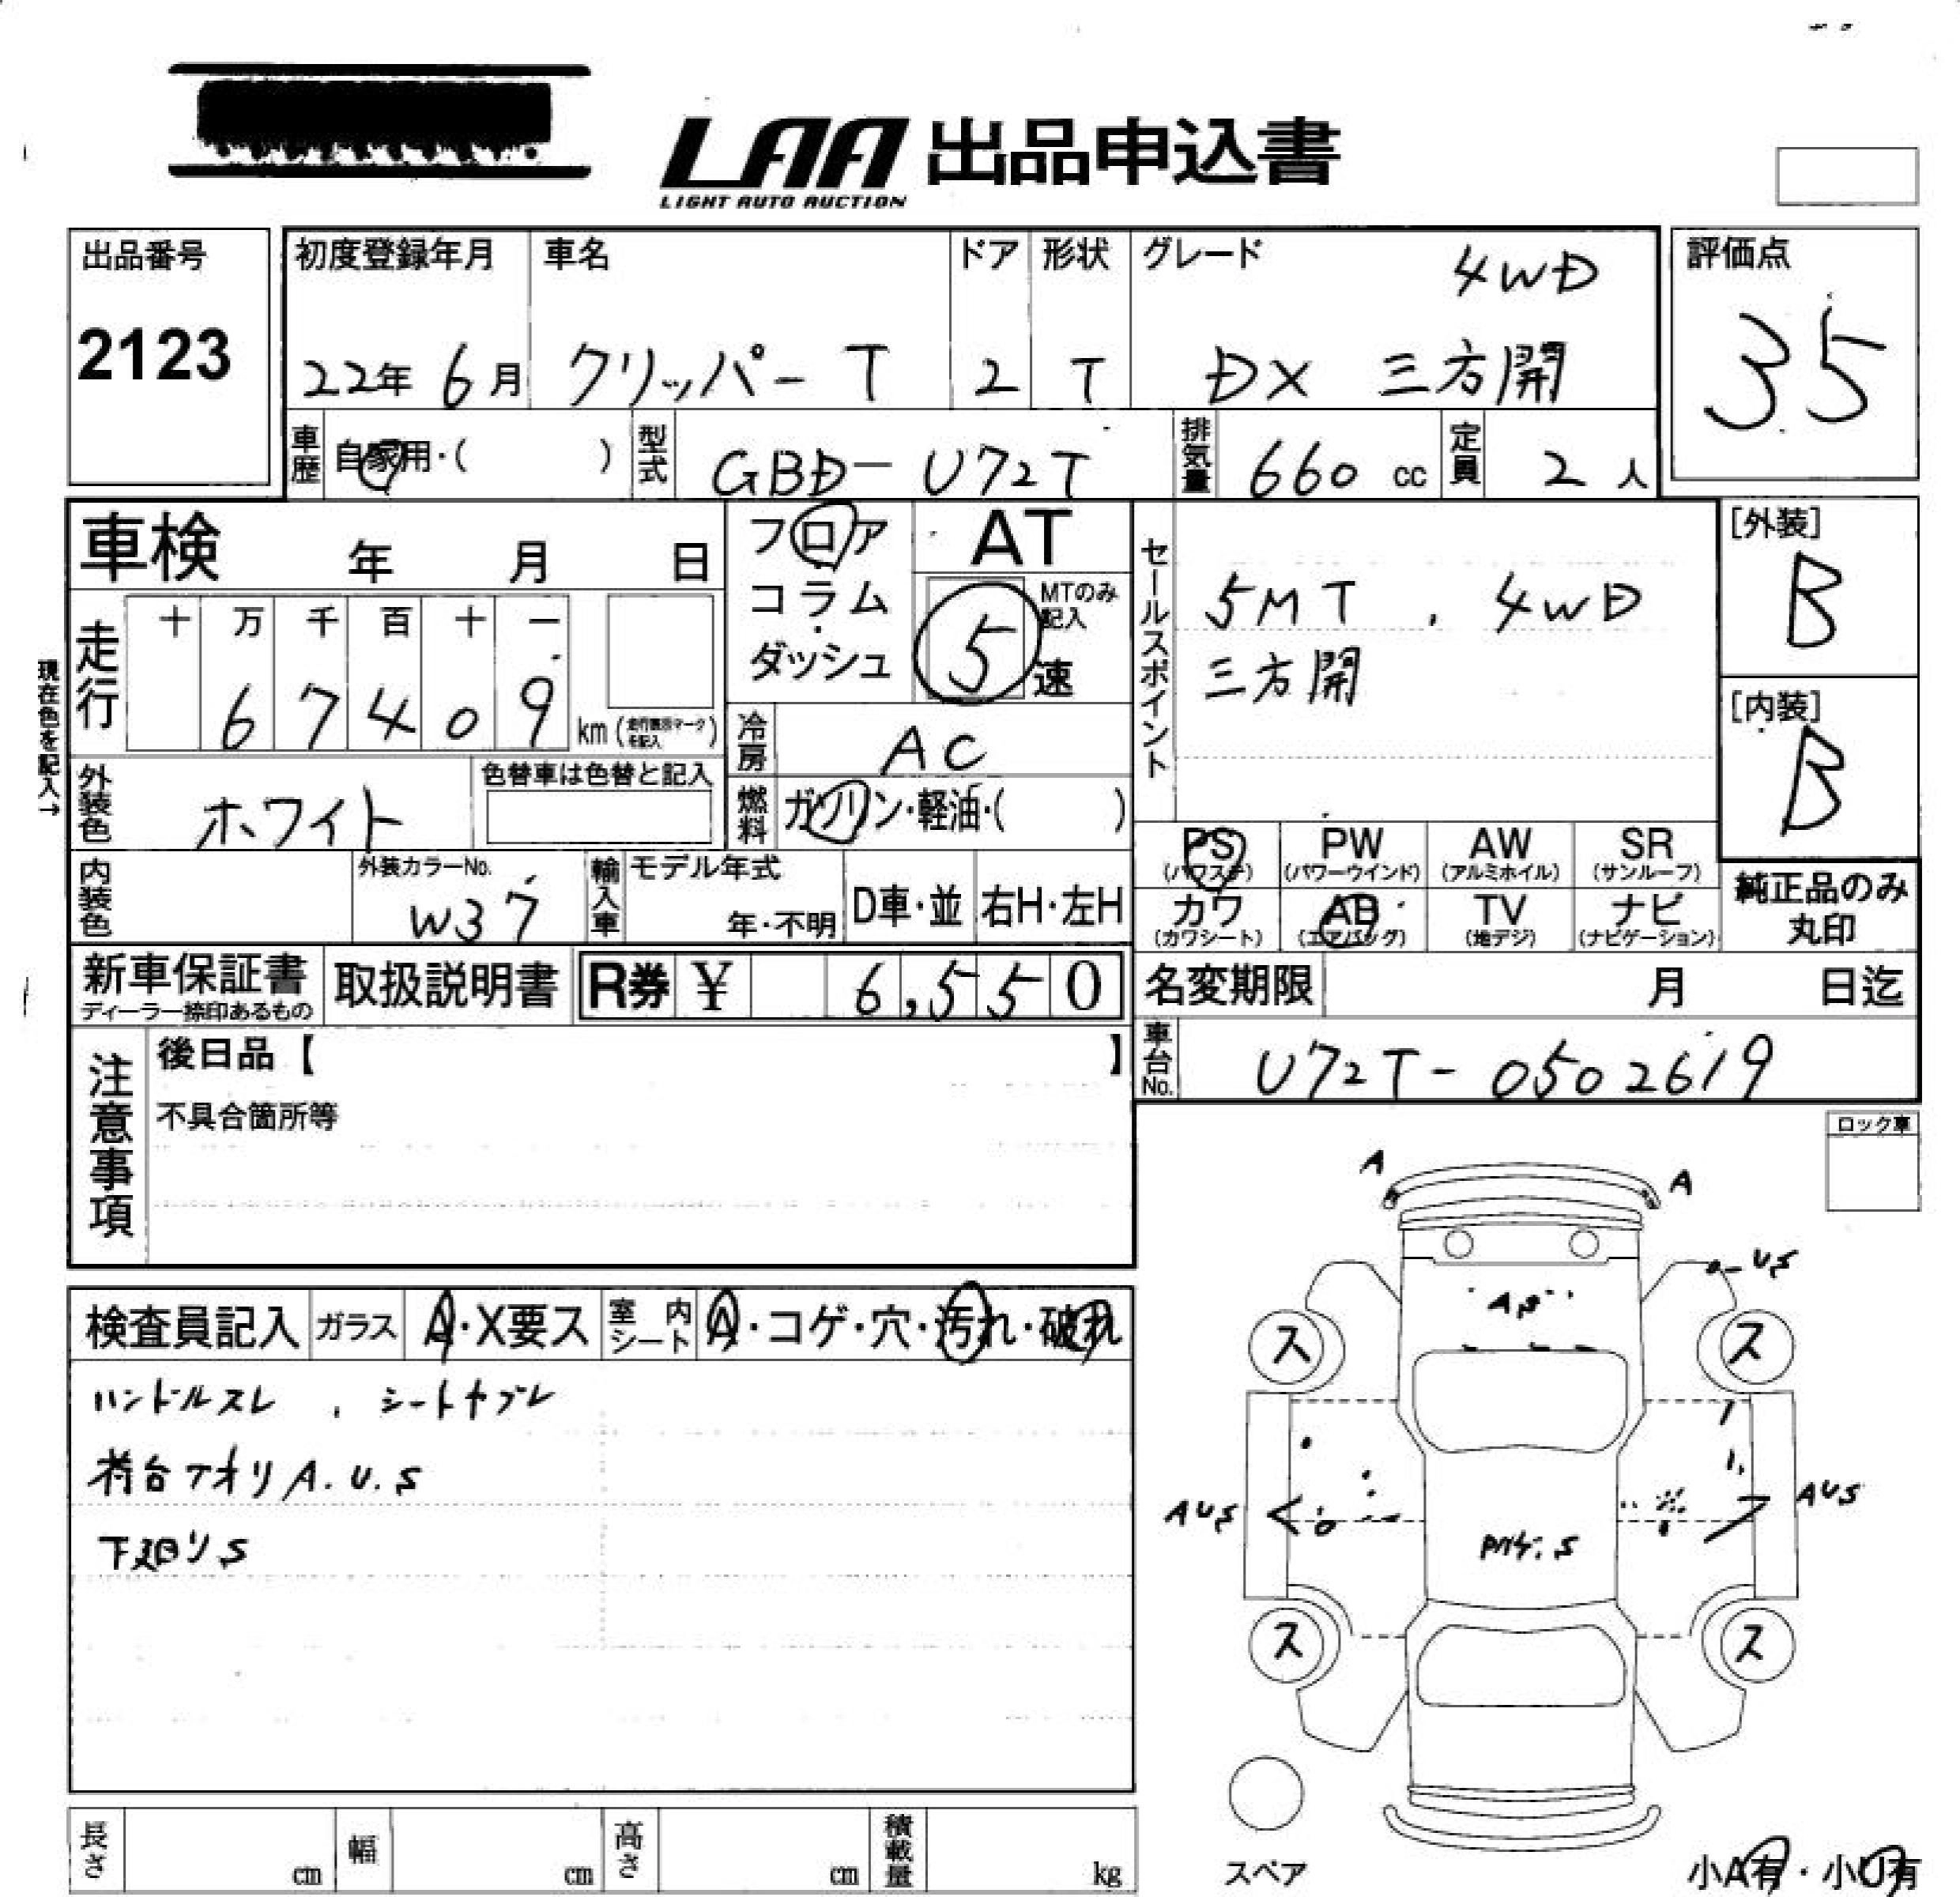 LAA 出品申込書
LIGHT AUTO AUCTION
出品番号
2123
初度登録年月 車名 ドア 形状 グレード 4WD
22年 6月 クリッパー T 2 T DX 三方開
評価点
35
車歴 自家用・( ) 型式 GBD-U72T 排気量 660 cc 定員 2 人
車検 年 月 日
フロア
コラム
ダッシュ
AT
MTのみ記入
5 速
セールスポイント
5MT . 4WD
三方開
[外装]
B
[内装]
B
現在色を記入→
走行 十 万 千 百 十 一
6 7 4 0 9 km
冷房 AC
外装色 ホワイト 色替車は色替と記入
燃料 ガソリン・軽油・( )
PS PW AW SR
(パワステ) (パワーウインド) (アルミホイル) (サンルーフ)
カワ AB TV ナビ
(カワシート) (エアバッグ) (地デジ) (ナビゲーション)
純正品のみ
丸印
内装色 外装カラーNo. W37 輸入車 モデル年式 年・不明 D車・並 右H・左H
新車保証書 取扱説明書 R券 ¥ 6,550
ディーラー捺印あるもの
名変期限 月 日迄
車台No. U72T-0502619
注意事項
後日品【 】
不具合箇所等
ロック車
検査員記入 ガラス A・X要ス 室内シート A・コゲ・穴・汚れ・破れ
ハンドルスレ . シートヤブレ
荷台アオリ A.U.S
下廻り S
A A
US
A,S
ス ス
AUS AUS
ス ス
スペア
小A有・小U有
長さ cm 幅 cm 高さ cm 積載量 kg